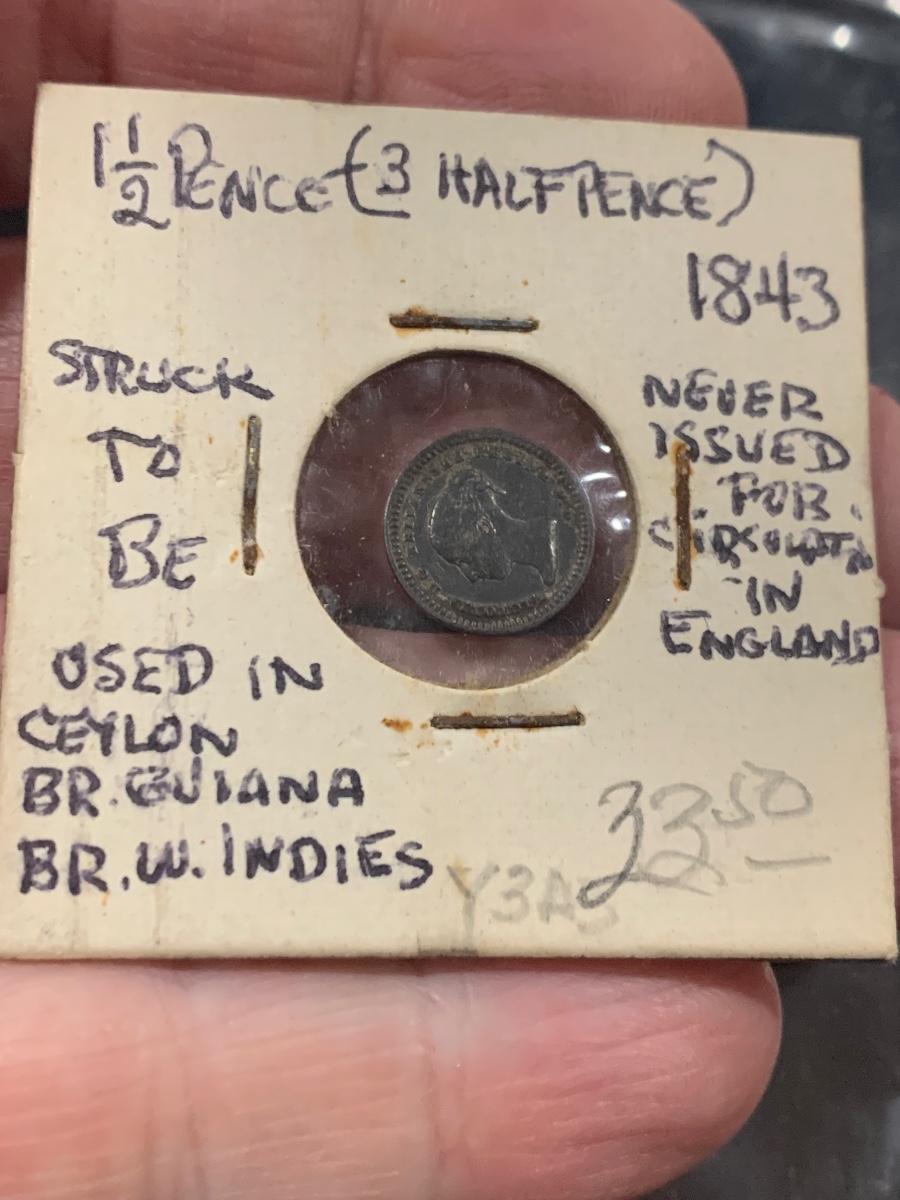 1 1/2 PENCE (3 HALFPENCE)
1843
STRUCK
TO
BE
USED IN
CEYLON
BR. GUIANA
BR. W. INDIES
NEVER
ISSUED
FOR
IN
ENGLAND
33 50